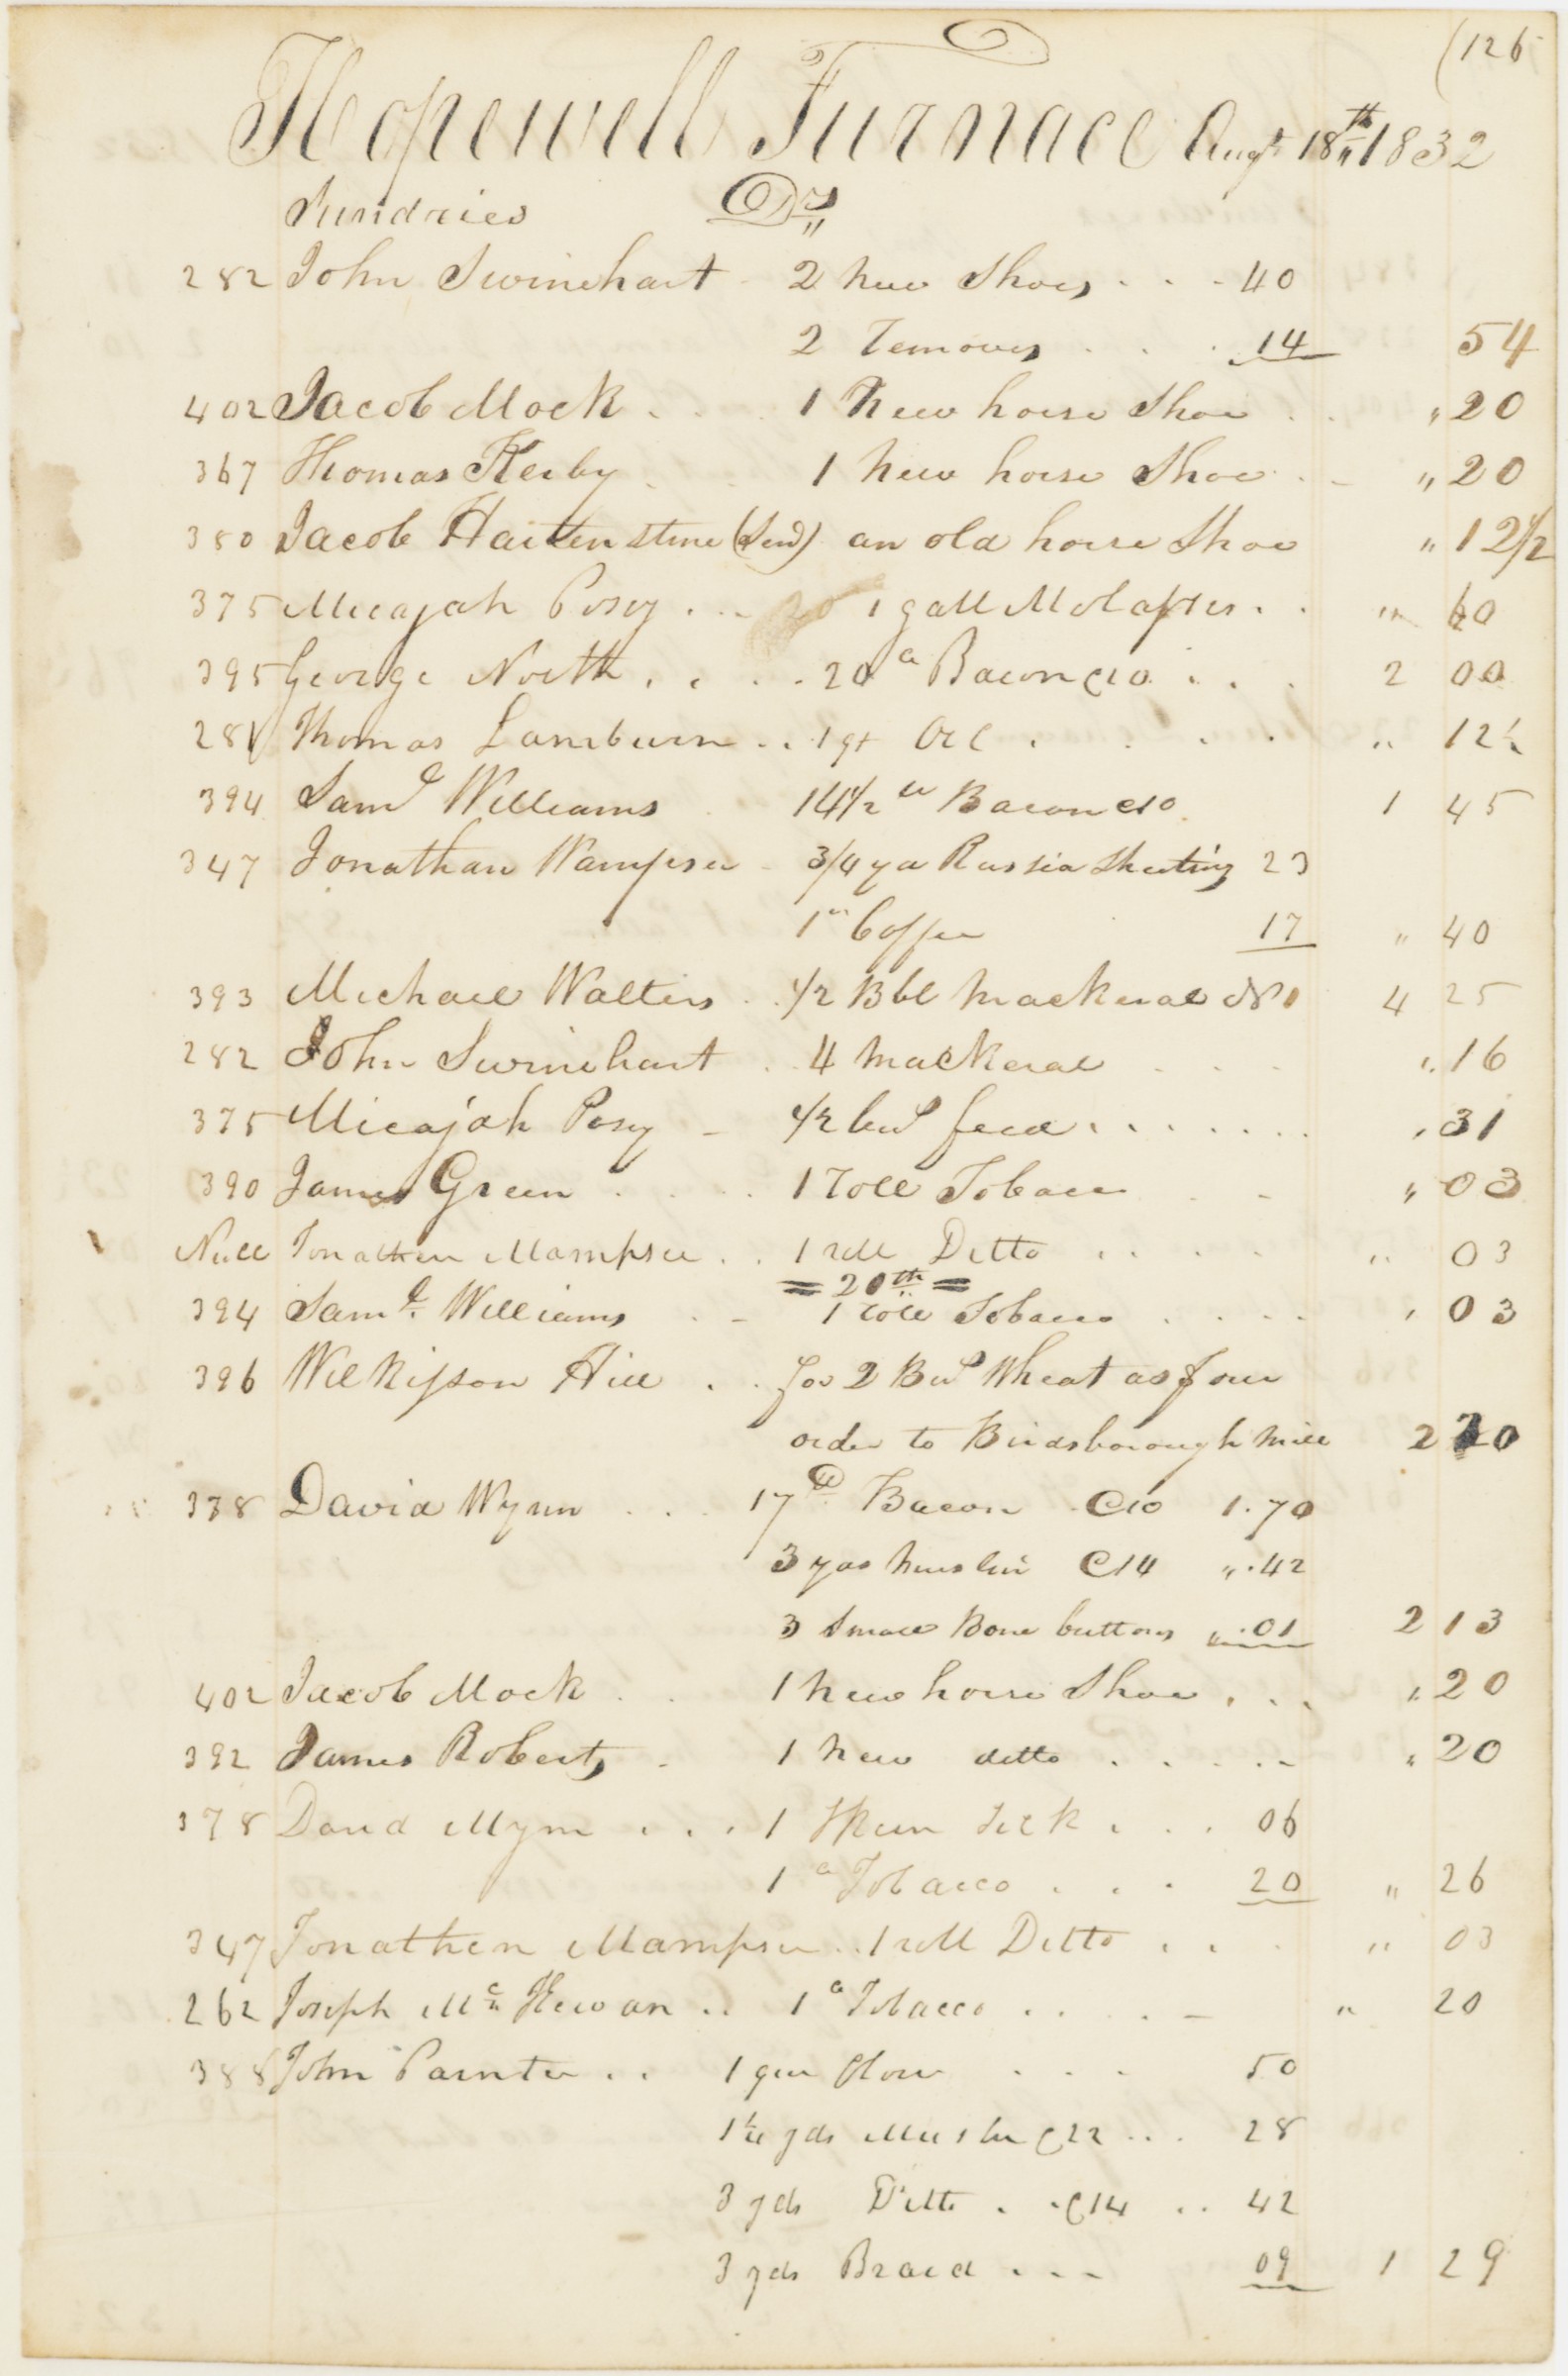 (126
Hopewell Furnace Augt 18th 1832
Sundries Dr
282 John Swinehart - 2 New Shoes . . . 40
2 removes . . . 14 54
402 Jacob Mock . . 1 New horse Shoe . . " 20
367 Thomas Kerby 1 New horse Shoe . - " 20
380 Jacob Hartenstine (Send) an old horse Shoe " 12 1/2
375 Micajah Posey . . . 1 gall Molasses . . " 60
395 George North . . . . 20 lb Bacon @10 . . . 2 00
281 Thomas Lamburn . . 1 qt Oil . . . . " 12 1/2
394 Saml Williams 14 1/2 lb Bacon @10 1 45
347 Jonathan Wampser - 3/4 yd Russia Sheeting 23
1 lb Coffee 17 " 40
393 Michael Walters . . 1/2 Bbl Mackeral No 1 4 25
282 John Swinehart . . 4 Mackeral . . . " 16
375 Micajah Posey - 1/2 bul feed . . . . . . . " 31
390 James Green . . . 1 roll Tobacco . - " 03
Null Jonathan Wampser . . 1 roll Ditto . . . . " 03
= 20th =
394 Saml Williams . - 1 roll Tobacco . . . . " 03
396 Wilkisson Hill . . for 2 Bul Wheat as per our
order to Birdsborough Mill 2 20
378 David Wynn . . . 17 lb Bacon @10 1.70
3 yds Muslin @14 " .42
3 Small Bone buttons " .01 2 13
402 Jacob Mock . . 1 New horse Shoe . . . " 20
392 James Roberts - 1 New ditto . . . . - " 20
378 David Wynn . . . 1 Skein Silk . . . 06
1 lb Tobacco . . . 20 " 26
347 Jonathen Wampser . . 1 roll Ditto . . . " 03
262 Joseph Mc Kewan . . 1 lb Tobacco . . . . - " 20
388 John Painter . . 1 qur flour . . . 50
1 1/4 yds Muslin @22 . . . 28
3 yds Ditto . . @14 . . 42
3 yds Braid . . - 09 1 29